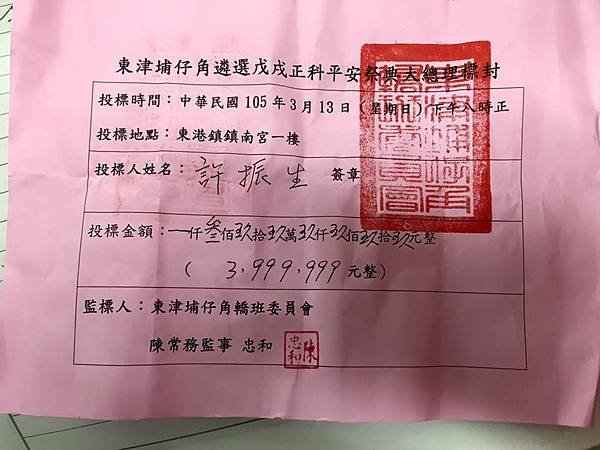 東津埔仔角遴選戊戌正科平安祭典大總理標封
投標時間：中華民國 105 年 3 月 13 日（星期日）下午八時正
投標地點：東港鎮鎮南宮一樓
投標人姓名：許振生 簽章
投標金額：一仟叁佰玖拾玖萬玖仟玖佰玖拾玖元整
（ 3,999,999 元整）
監標人：東津埔仔角轎班委員會
陳常務監事 忠和
陳忠和